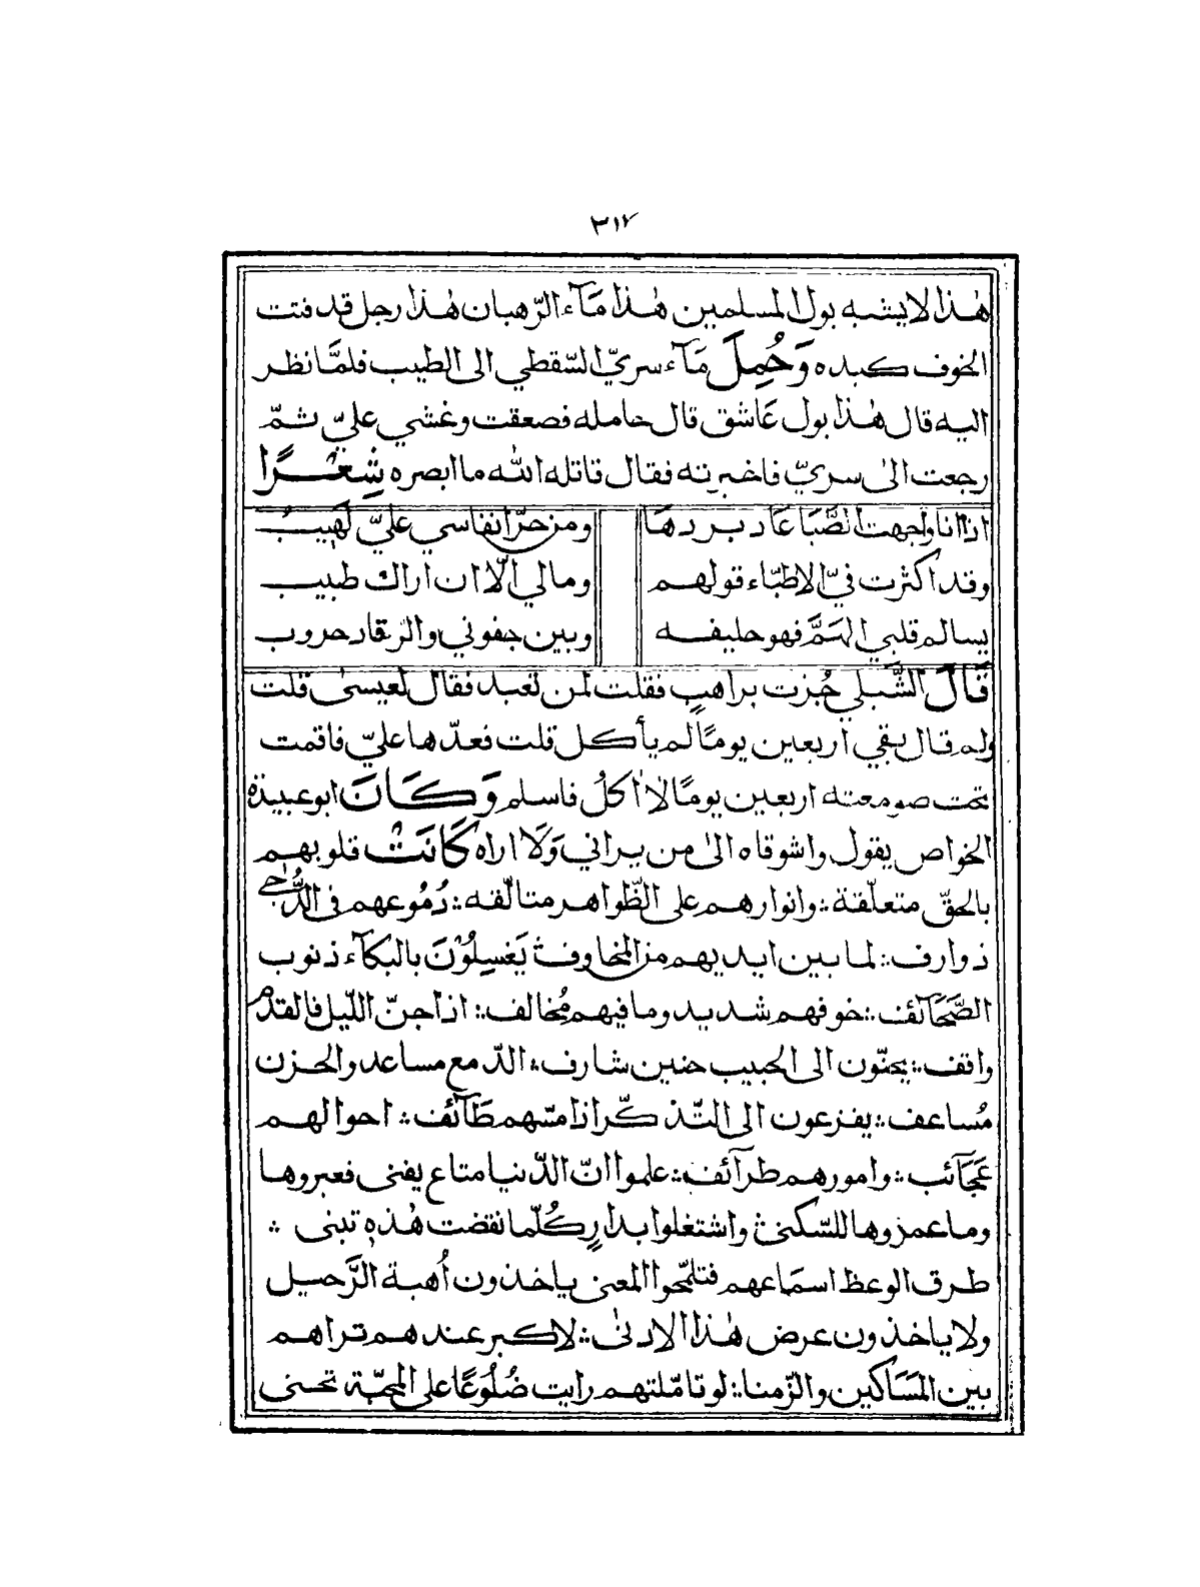 ٣١٧
هٰذا لا يشبه بول المسلمين هٰذا مَآء الرّهبان هٰذا رجل قد فتت
الخوف كبده وَحُمِلَ مَآء سريّ السّقطي الى الطيب فلمَّا نظر
اليه قال هٰذا بول عَاشق قال حامله فصعقت وغشي عليّ ثمّ
رجعت الىٰ سريّ فاخبرته فقال قاتله الله ما ابصره شِعْرًا
اذا انا واجهت الصَّبَا عَاد بردهَا ومن حرّ انفاسي عليَّ لَهِيبُ
وقد اكثرت فيّ الاطبّاء قولهم ومالي الّا ان اراك طبيب
يسالم قلبي الهَمَّ فهو حليفه وبين جفوني والرّقاد حروب
قَالَ الشَّبلي جُزت براهبٍ فقلت لمن تعبد فقال لعيسىٰ قلت
ولم قال بقي اربعين يومًا لم يأكل قلت فعدّها عليّ فاقمت
تحت صومعته اربعين يومًا لا اٰكلُ فاسلم وَكَانَ ابو عبيدة
الخواص يقول واشوقاه الىٰ من يراني وَلَا اراه كَانَتْ قلوبهم
بالحقّ متعلّقة ؞ وانوارهم على الظّواهر متالّقه ؞ دُمُوعهم فى الدُّجٰى
ذوارف ؞ لما بين ايديهم من المخاوف يَغسِلُوْنَ بالبكآء ذنوب
الصَّحَآئف ؞ خوفهم شديد وما فيهم مُخالف ؞ اذا جنّ اللّيل فالقدم
واقف ؞ يحنّون الى الحبيب حنين شارف ؞ الدّمع مساعد والحزن
مُساعف ؞ يفزعون الى التّذكّر اذا مسّهم طَآئف ؞ احوالهم
عَجَآئب ؞ وامورهم طرآئف ؞ علموا انّ الدّنيا متاع يفنى فعبروها
وما عمروها للسّكنىٰ واشتغلوا بدارٍ كُلّما نقضت هٰذه تبنى ؞
طرق الوعظ اسمَاعهم فتلمّحوا المعنى ياخذون اُهبة الرَّحيل
ولا ياخذون عرض هٰذا الادنىٰ ؞ لا كبر عندهم تراهم
بين المَسَاكين والزّمنا ؞ لو تامّلتهم رايت ضُلُوعًا على المحبّة تحنى